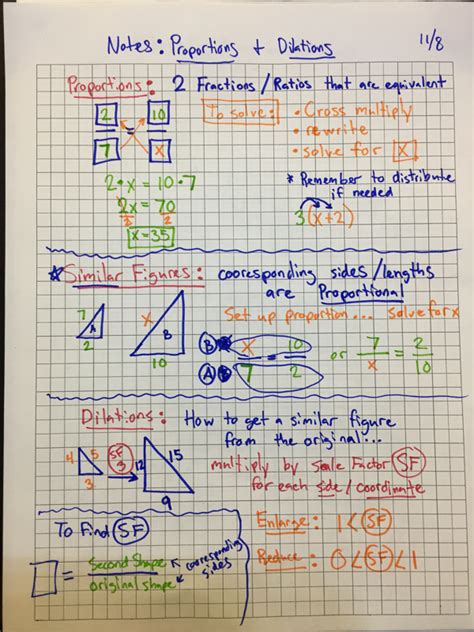 Notes: Proportions + Dilations 11/8
Proportions: 2 Fractions/Ratios that are equivalent
2/7 = 10/x
To solve: • Cross multiply
• rewrite
• solve for x
2·x = 10·7
2x = 70
2 2
x=35
* Remember to distribute
if needed
3(x+2)
*Similar Figures: cooresponding sides/lengths
are Proportional
Set up proportion... solve for x
7 A 2
x 8 10
B x = 10
A 7 2
or 7/x = 2/10
Dilations: How to get a similar figure
from the original...
multiply by Scale Factor SF
for each side/coordinate
4 5 3
SF 3
12 15 9
To Find SF
= Second Shape
original shape
cooresponding
sides
Enlarge: 1<SF
Reduce: 0<SF<1